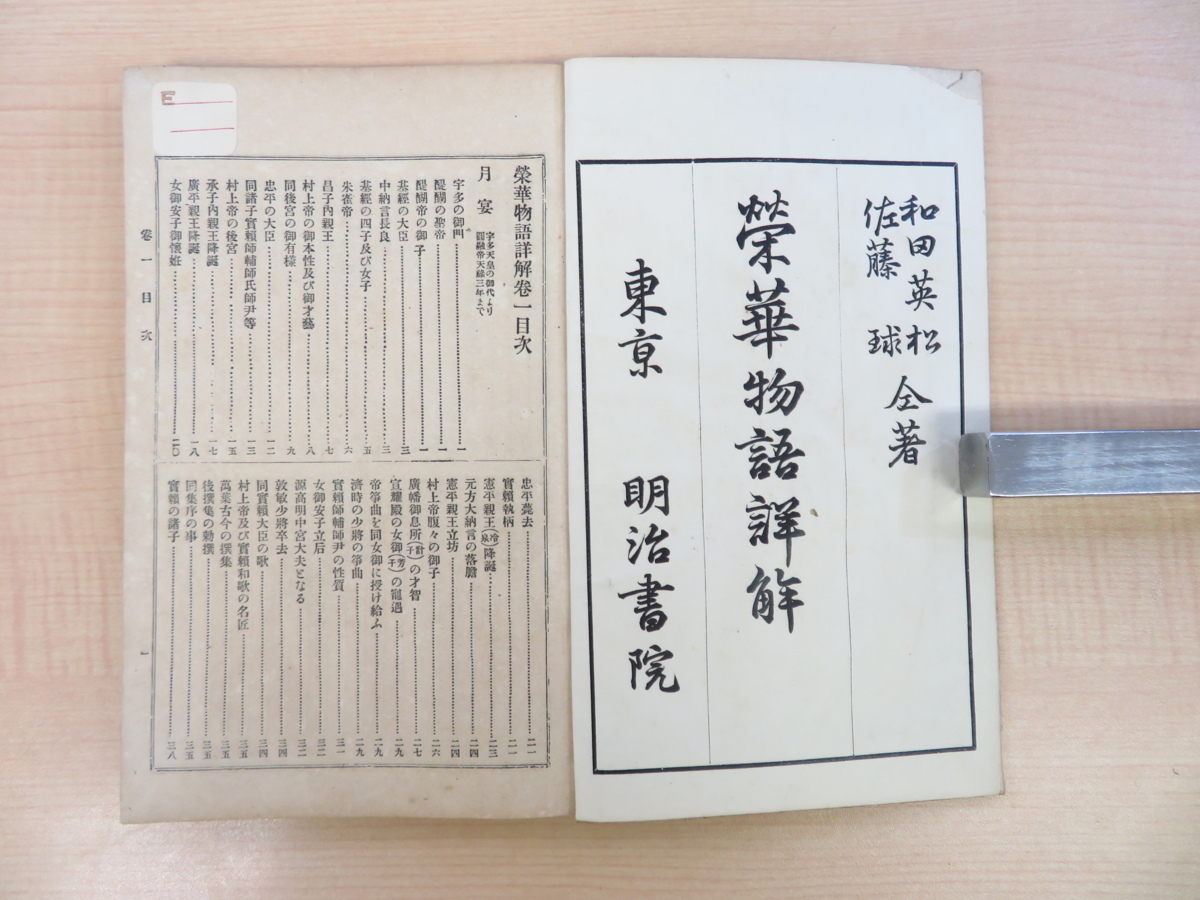 和田英松
佐藤球
仝著
榮華物語詳解
東京 明治書院
E
榮華物語詳解卷一目次
月宴
宇多天皇の御代より
圓融帝天祿三年まで
宇多の御門……一
醍醐の聖帝……一
醍醐帝の御子……一
基經の大臣……三
中納言長良……三
基經の四子及び女子……五
朱雀帝……六
昌子內親王……七
村上帝の御本性及び御才藝……八
同後宮の御有樣……九
忠平の大臣……一二
同諸子實賴師輔師氏師尹等……一三
村上帝の後宮……一五
承子內親王降誕……一七
廣平親王降誕……一八
女御安子御懷妊……二〇
忠平薨去……二一
實賴執柄……二一
憲平親王(冷泉)降誕……二三
元方大納言の落膽……二四
憲平親王立坊……二四
村上帝腹々の御子……二六
廣幡御息所(計子)の才智……二七
宣耀殿の女御(芳子)の寵遇……二九
帝箏曲を同女御に授け給ふ……二九
濟時の少將の箏曲……二九
實賴師輔師尹の性質……三一
女御安子立后……三二
源高明中宮大夫となる……三二
敦敏少將卒去……三四
同實賴大臣の歌……三四
村上帝及び實賴和歌の名匠……三五
萬葉古今の撰集……三五
後撰集の勅撰……三五
同集序の事……三五
實賴の諸子……三八
卷一目次
一